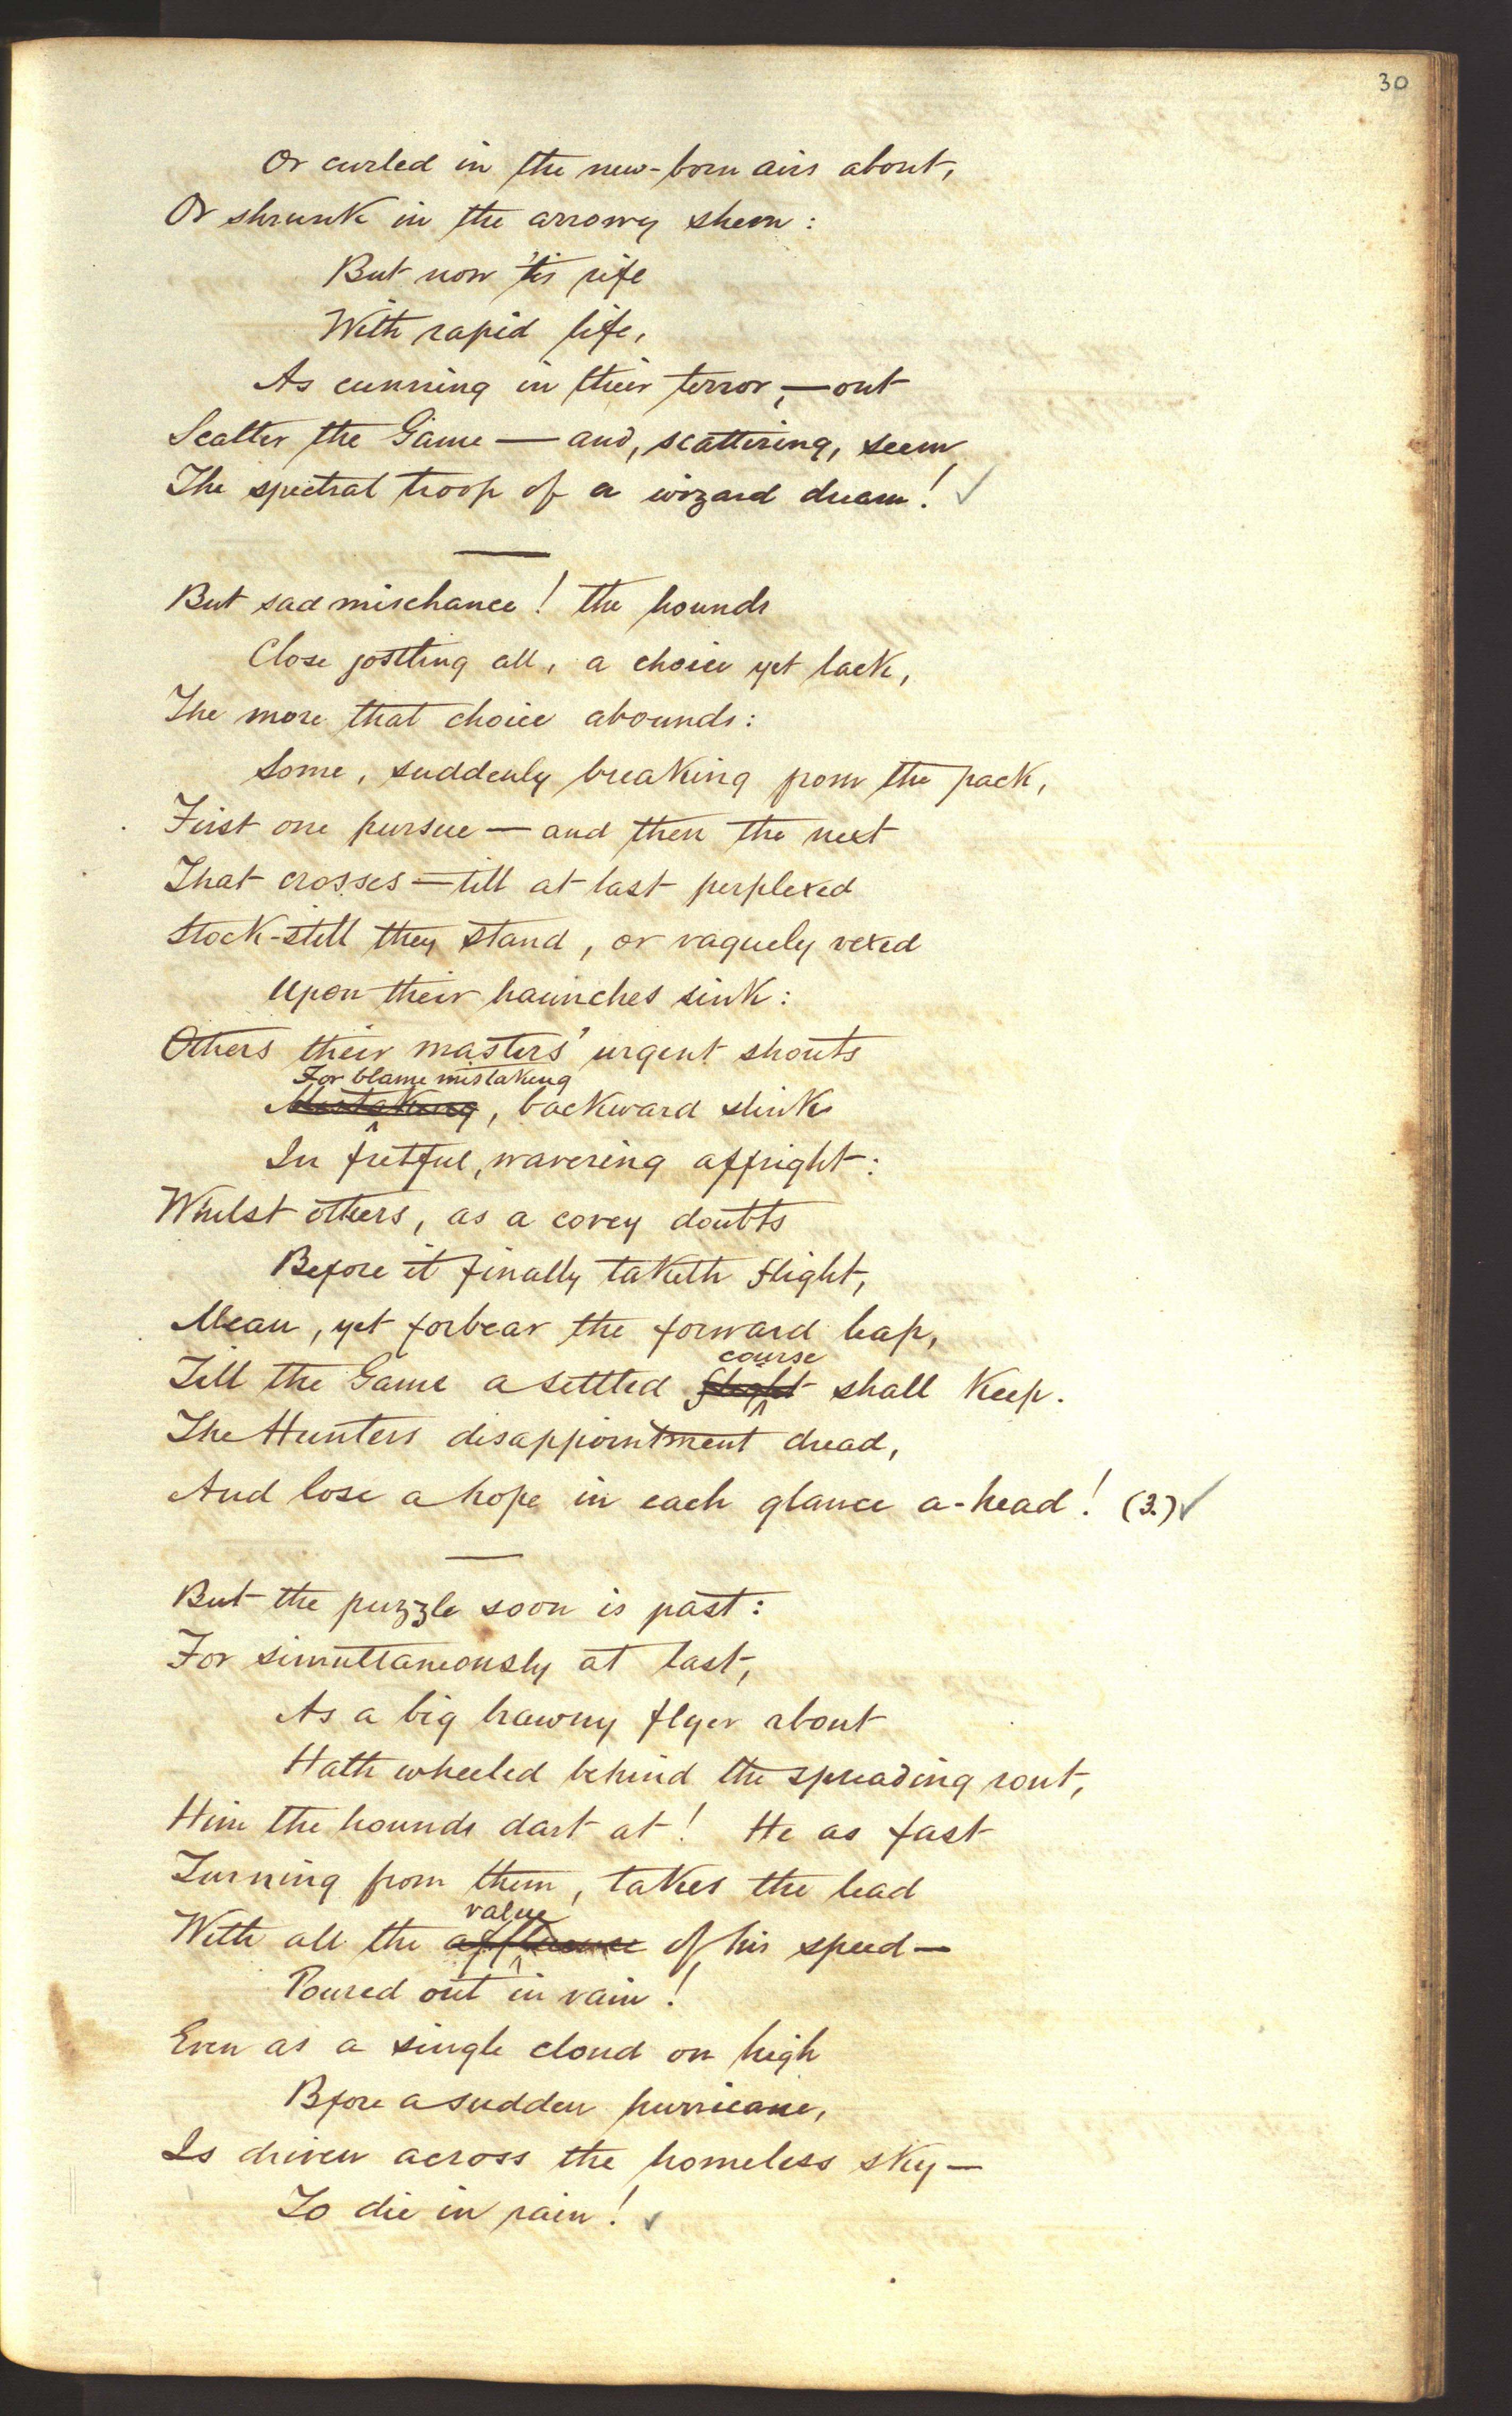 30
Or curled in the new-born airs about,
Or shrunk in the arrowy sheen:
But now 'tis rife
With rapid life,
As cunning in their terror,—out
Scatter the Game — and, scattering, seem
The spectral troop of a wizard dream! ✓
But sad mischance! the hounds
Close jostling all, a choice yet lack,
The more that choice abounds:
Some, suddenly breaking from the pack,
First one pursue — and then the next
That crosses — till at last perplexed
Stock-still they stand, or vaguely vexed
Upon their haunches sink:
Others their masters' urgent shouts
For blame mistaking
Mistaking, backward slink
In fretful, wavering affright:
Whilst others, as a covey doubts
Before it finally taketh flight,
Mean, yet forbear the forward leap,
course
Till the Game a settled flight shall keep.
The Hunters disappointment dread,
And lose a hope in each glance a-head! (3.) ✓
But the puzzle soon is past:
For simultaneously at last,
As a big brawny flyer about
Hath wheeled behind the spreading rout,
Him the hounds dart at! He as fast
Turning from them, takes the lead
value
With all the affluence of his speed —
Poured out in vain!
Even as a single cloud on high
Bfore a sudden hurricane,
Is driven across the homeless sky —
To die in rain! ✓